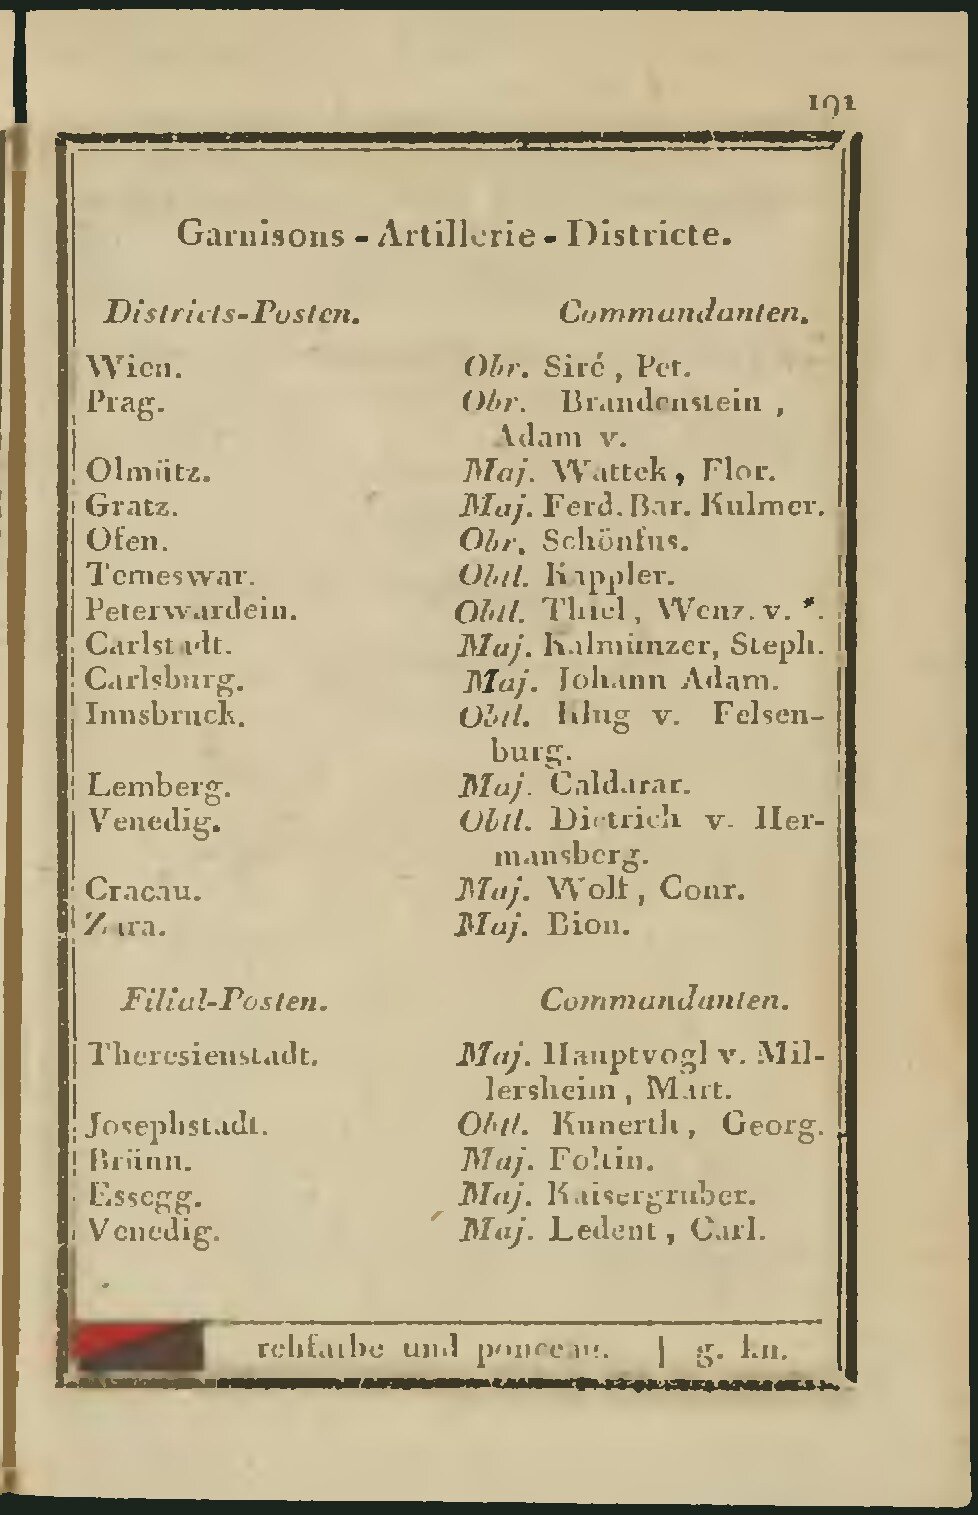 191
Garnisons - Artillerie - Districte.
Districts-Posten. Commandanten.
Wien. Obr. Siré, Pet.
Prag. Obr. Brandenstein,
Adam v.
Olmütz. Maj. Wattek, Flor.
Gratz. Maj. Ferd. Bar. Kulmer.
Ofen. Obr. Schönfus.
Temeswar. Obtl. Kappler.
Peterwardein. Obtl. Thiel, Wenz. v. *.
Carlstadt. Maj. Kalmünzer, Steph.
Carlsburg. Maj. Johann Adam.
Innsbruck. Obtl. Klug v. Felsen-
burg.
Lemberg. Maj. Caldarar.
Venedig. Obtl. Dietrich v. Her-
mansberg.
Cracau. Maj. Wolf, Conr.
Zara. Maj. Bion.
Filial-Posten. Commandanten.
Theresienstadt. Maj. Hauptvogl v. Mil-
lersheim, Mart.
Josephstadt. Obtl. Kunerth, Georg.
Brünn. Maj. Foltin.
Essegg. Maj. Kaisergruber.
Venedig. Maj. Ledent, Carl.
rehfarbe und ponceau. | g. kn.